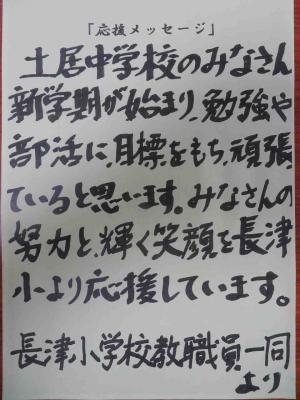 「応援メッセージ」
土居中学校のみなさん
新学期が始まり、勉強や
部活に、目標をもち、頑張っ
ていると思います。みなさんの
努力と、輝く笑顔を長津
小より応援しています。
長津小学校教職員一同
より